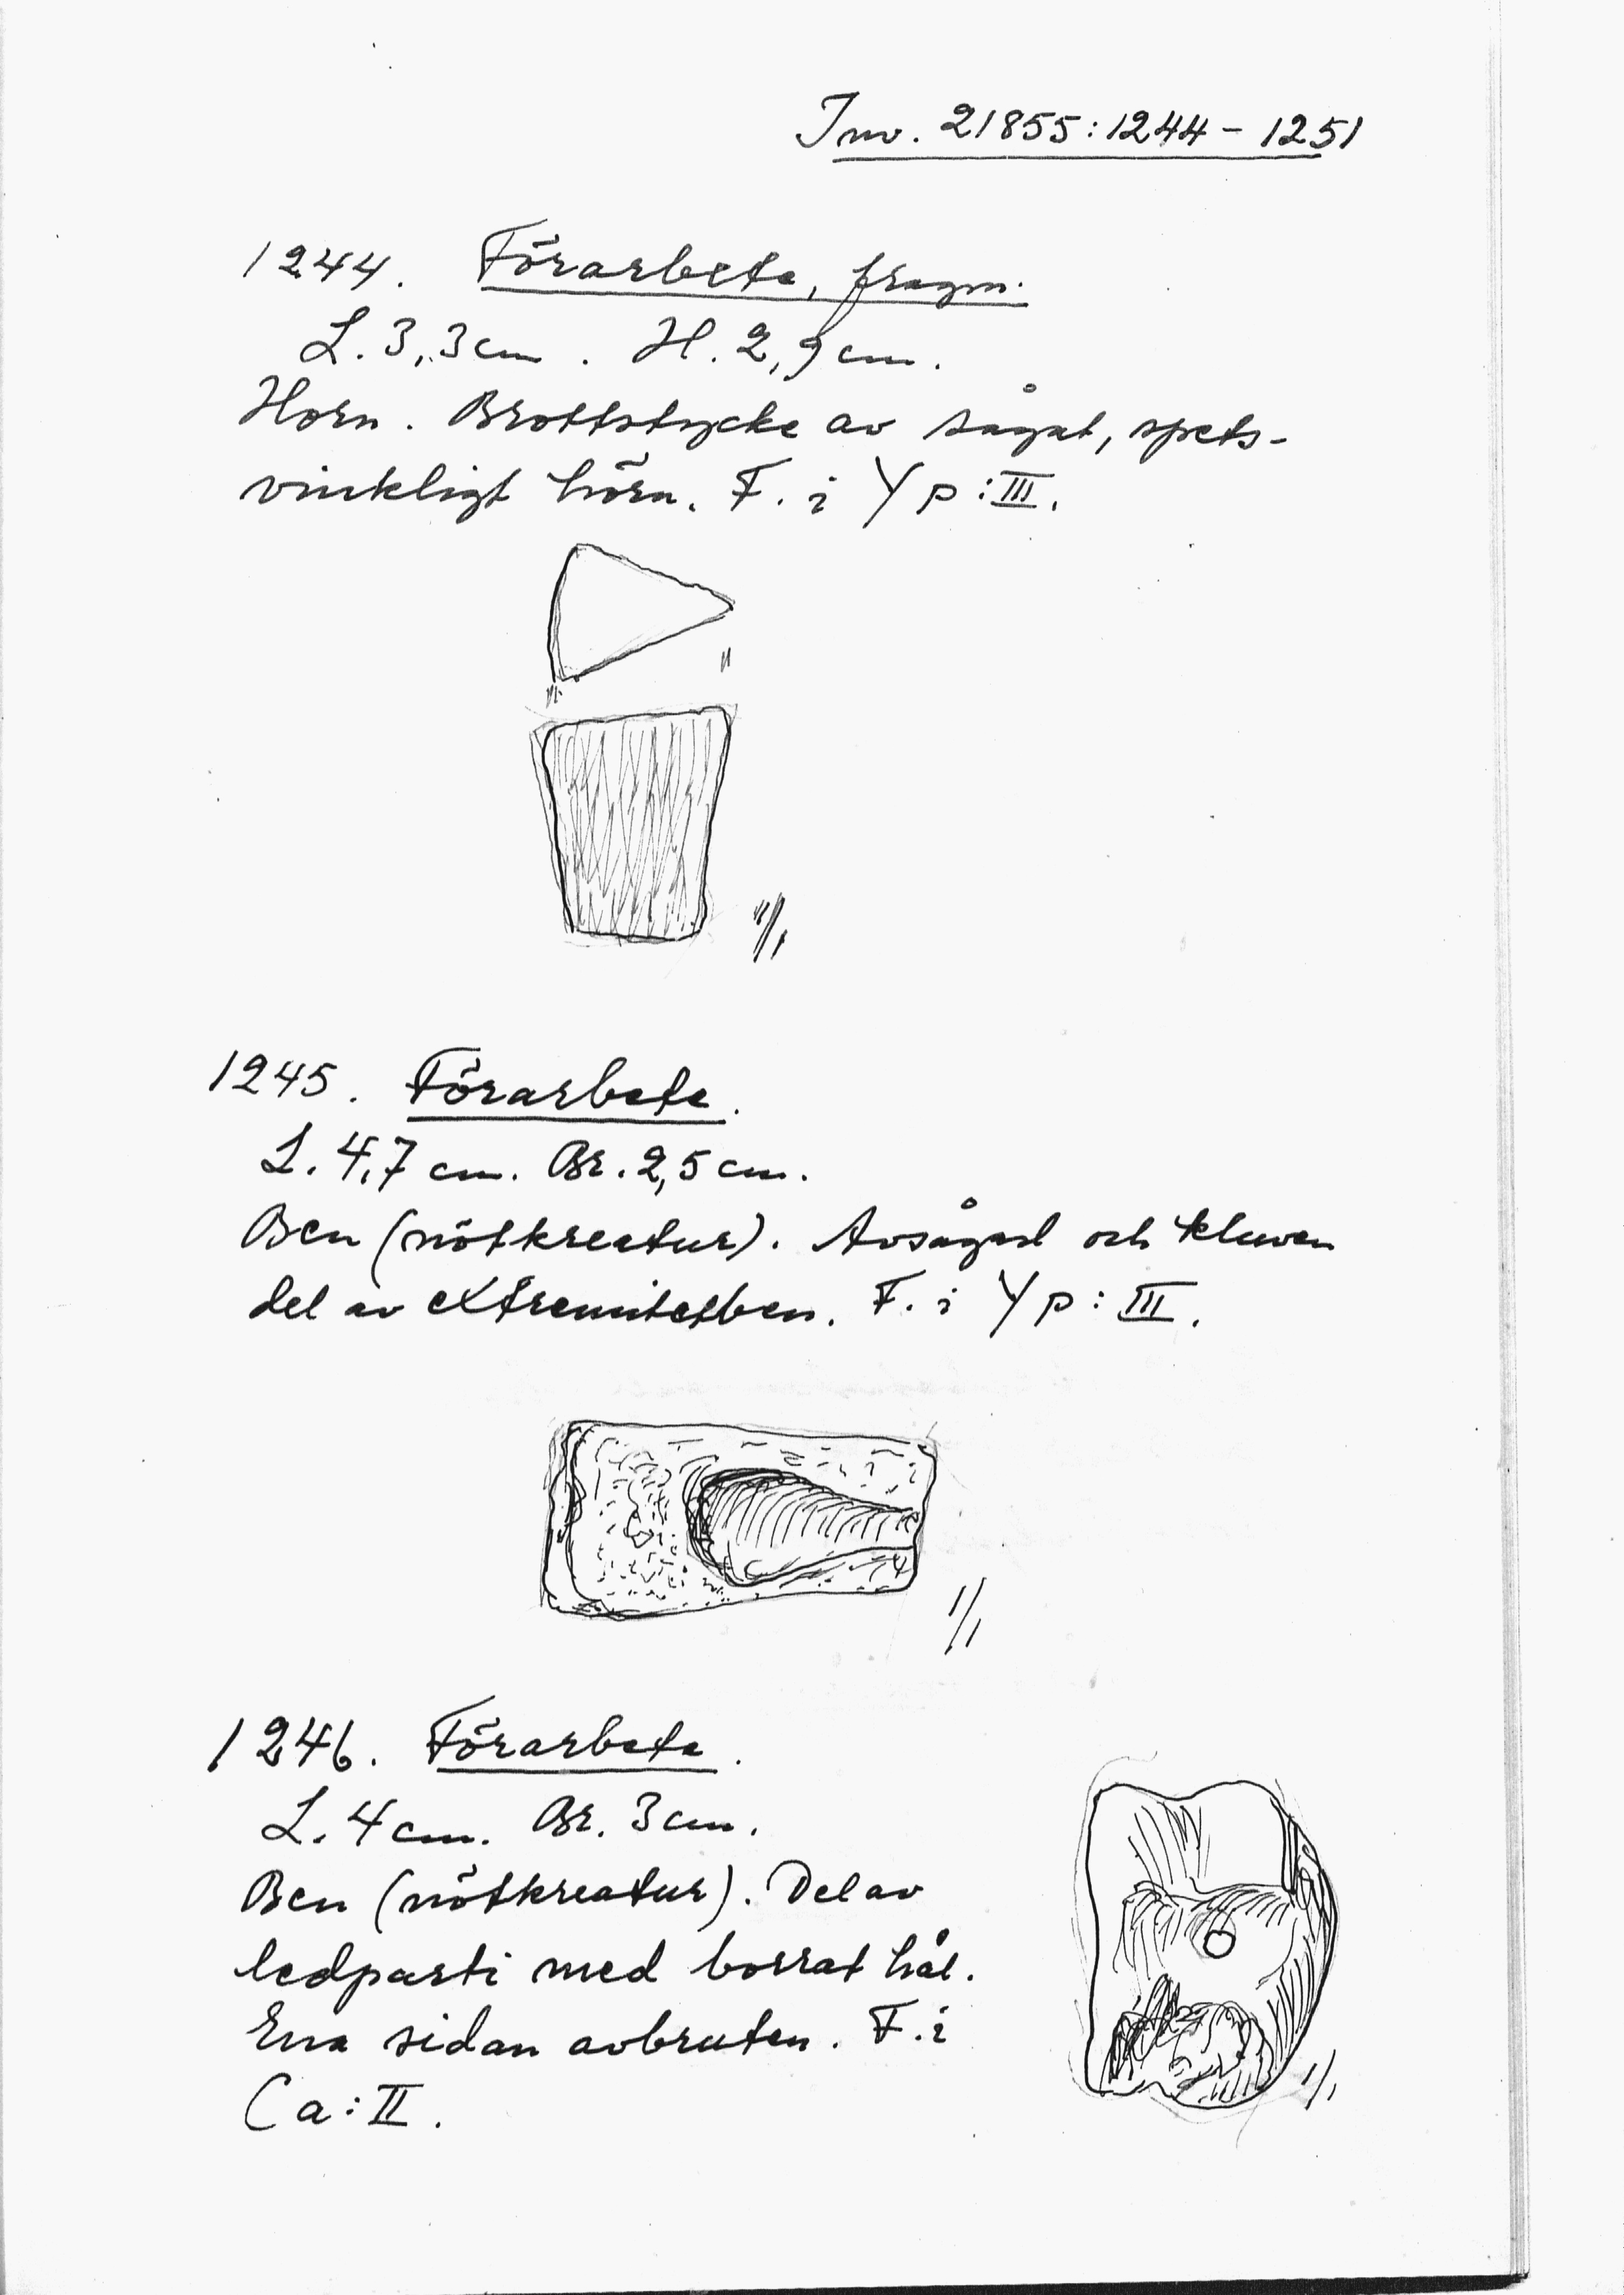 Inv. 21855:1244-1251
1244. Förarbete, fragm.
L. 3,3 cm. H. 2,9 cm.
Horn. Brottstycke av sågat, spets-
vinkligt hörn. F. i Yp:III.
1/1
1245. Förarbete.
L. 4,7 cm. Br. 2,5 cm.
Ben (nötkreatur). Avsågad och kluven
del av extremitetben. F. i Yp:III.
1/1
1246. Förarbete.
L. 4 cm. Br. 3 cm.
Ben (nötkreatur). Del av
ledparti med borrat hål.
Ena sidan avbruten. F. i
Ca:II.
1/1